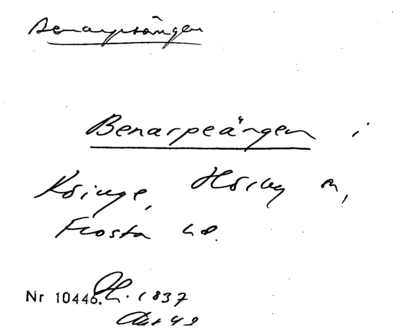 Benarpsängen
Benarpeängen i
Hörby sn,
Frosta hd.
Nr 10446. 1837
Akt 49